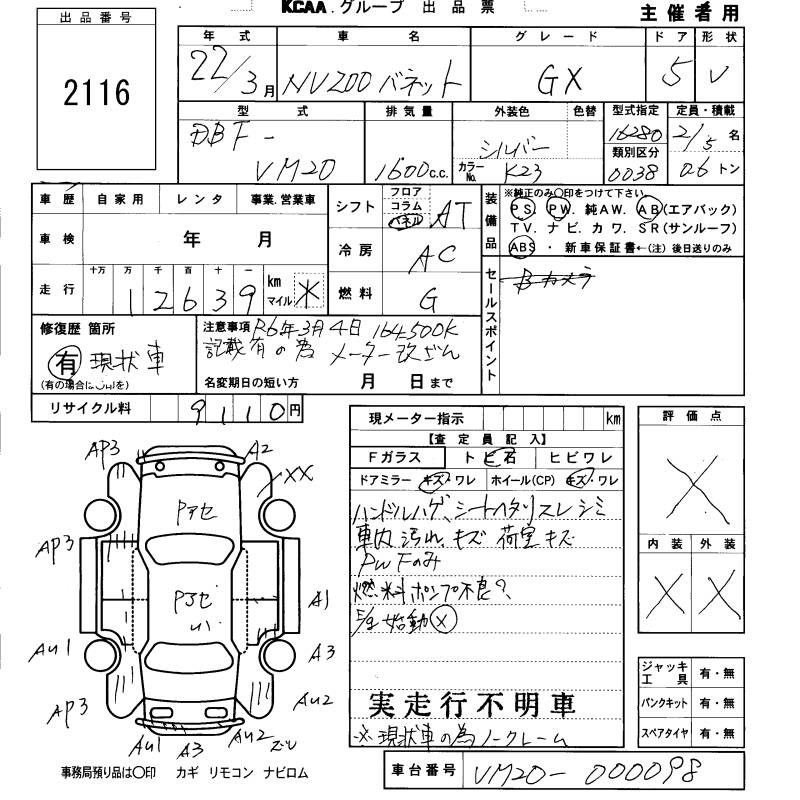 KCAA.グループ 出品票
主催者用
出品番号
2116
年式 車名 グレード ドア 形状
22/3月 NV200 バネット GX 5 V
型式 排気量 外装色 色替 型式指定 定員・積載
DBF-VM20 1600c.c. シルバー カラーNo. K23 16280 2/5名
類別区分
0038 0.6トン
車歴 自家用 レンタ 事業.営業車
車検 年 月
走行 十万 万 千 百 十 一
12639 km マイル ※
シフト フロア コラム パネル AT
冷房 AC
燃料 G
装備品 ※純正のみ○印をつけて下さい。
PS. PW. 純AW. AB(エアバック)
TV. ナビ. カワ. SR(サンルーフ)
ABS ・ 新車保証書←(注) 後日送りのみ
セールスポイント Bカメラ
修復歴 箇所
有 現状車
(有の場合は○印を)
注意事項 R6年3月4日 164500K
記載有の為 メーター改ざん
名変期日の短い方 月 日まで
リサイクル料 9110円
現メーター指示 km
【査定員記入】
Fガラス トビ石 ヒビワレ
ドアミラー キズ・ワレ ホイール(CP) キズ・ワレ
ハンドルハゲ、シートヘタリスレシミ
車内汚れ、キズ 荷室キズ
PW Fのみ
燃料ポンプ不良?、
E/g 始動×
実走行不明車
※現状車の為ノークレーム
評価点
×
内装 外装
× ×
ジャッキ工具 有・無
パンクキット 有・無
スペアタイヤ 有・無
AP3 A2
XX
Pアセ
AP3
Pアセ
A1
AU1 A3
AP3 AU2
AU1 A3 AU2
事務局預り品は○印 カギ リモコン ナビロム
車台番号 VM20-000098